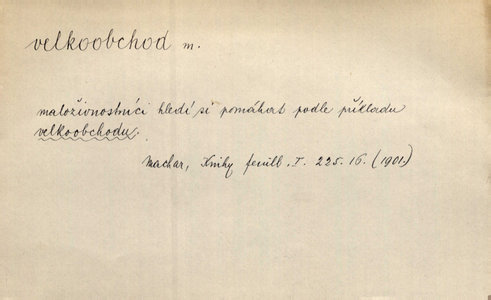 velkoobchod m.
maloživnostníci hledí si pomáhat podle příkladu
velkoobchodu.
Machar, Knihy feuill. I. 225. 16. (1901)